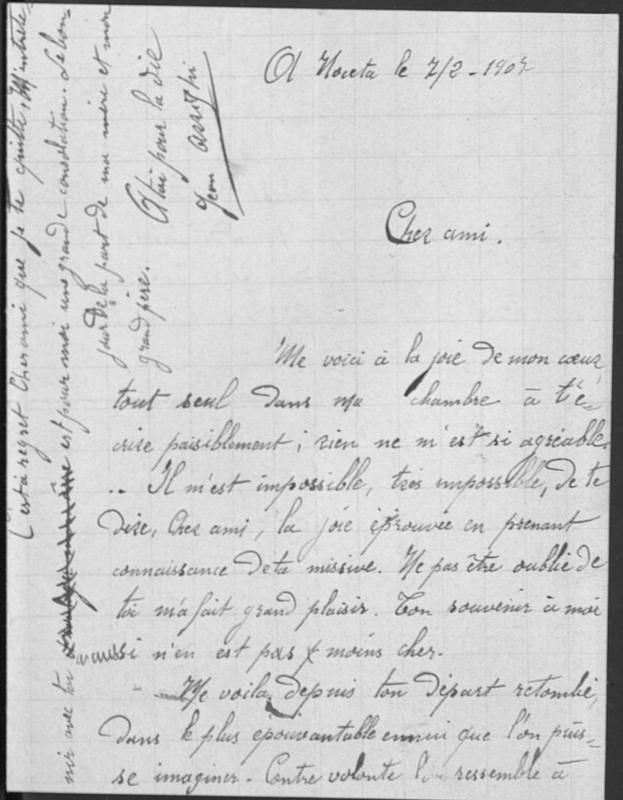 A Noceta le 7/2-1907
Cher ami.
Me voici à la joie de mon cœur
tout seul dans ma chambre à t'é-
crire paisiblement ; rien ne m'est si agréable.
.. Il m'est impossible, très impossible, de te
dire, Cher ami, la joie éprouvée en prenant
connaissance de ta missive. Ne pas être oublié de
toi m'a fait grand plaisir. Ton souvenir à moi
aussi n'en est pas moins cher.
Me voilà, depuis ton départ retombé,
dans le plus épouvantable ennui que l'on puis-
se imaginer. Contre volonté ressemble à
C'est à regret Cher ami que je te quitte, M'entrete-
nir avec toi est pour moi une grande consolation. Le bon-
jour de la part de ma mère et mon
grand père.
A toi pour la vie
Jean